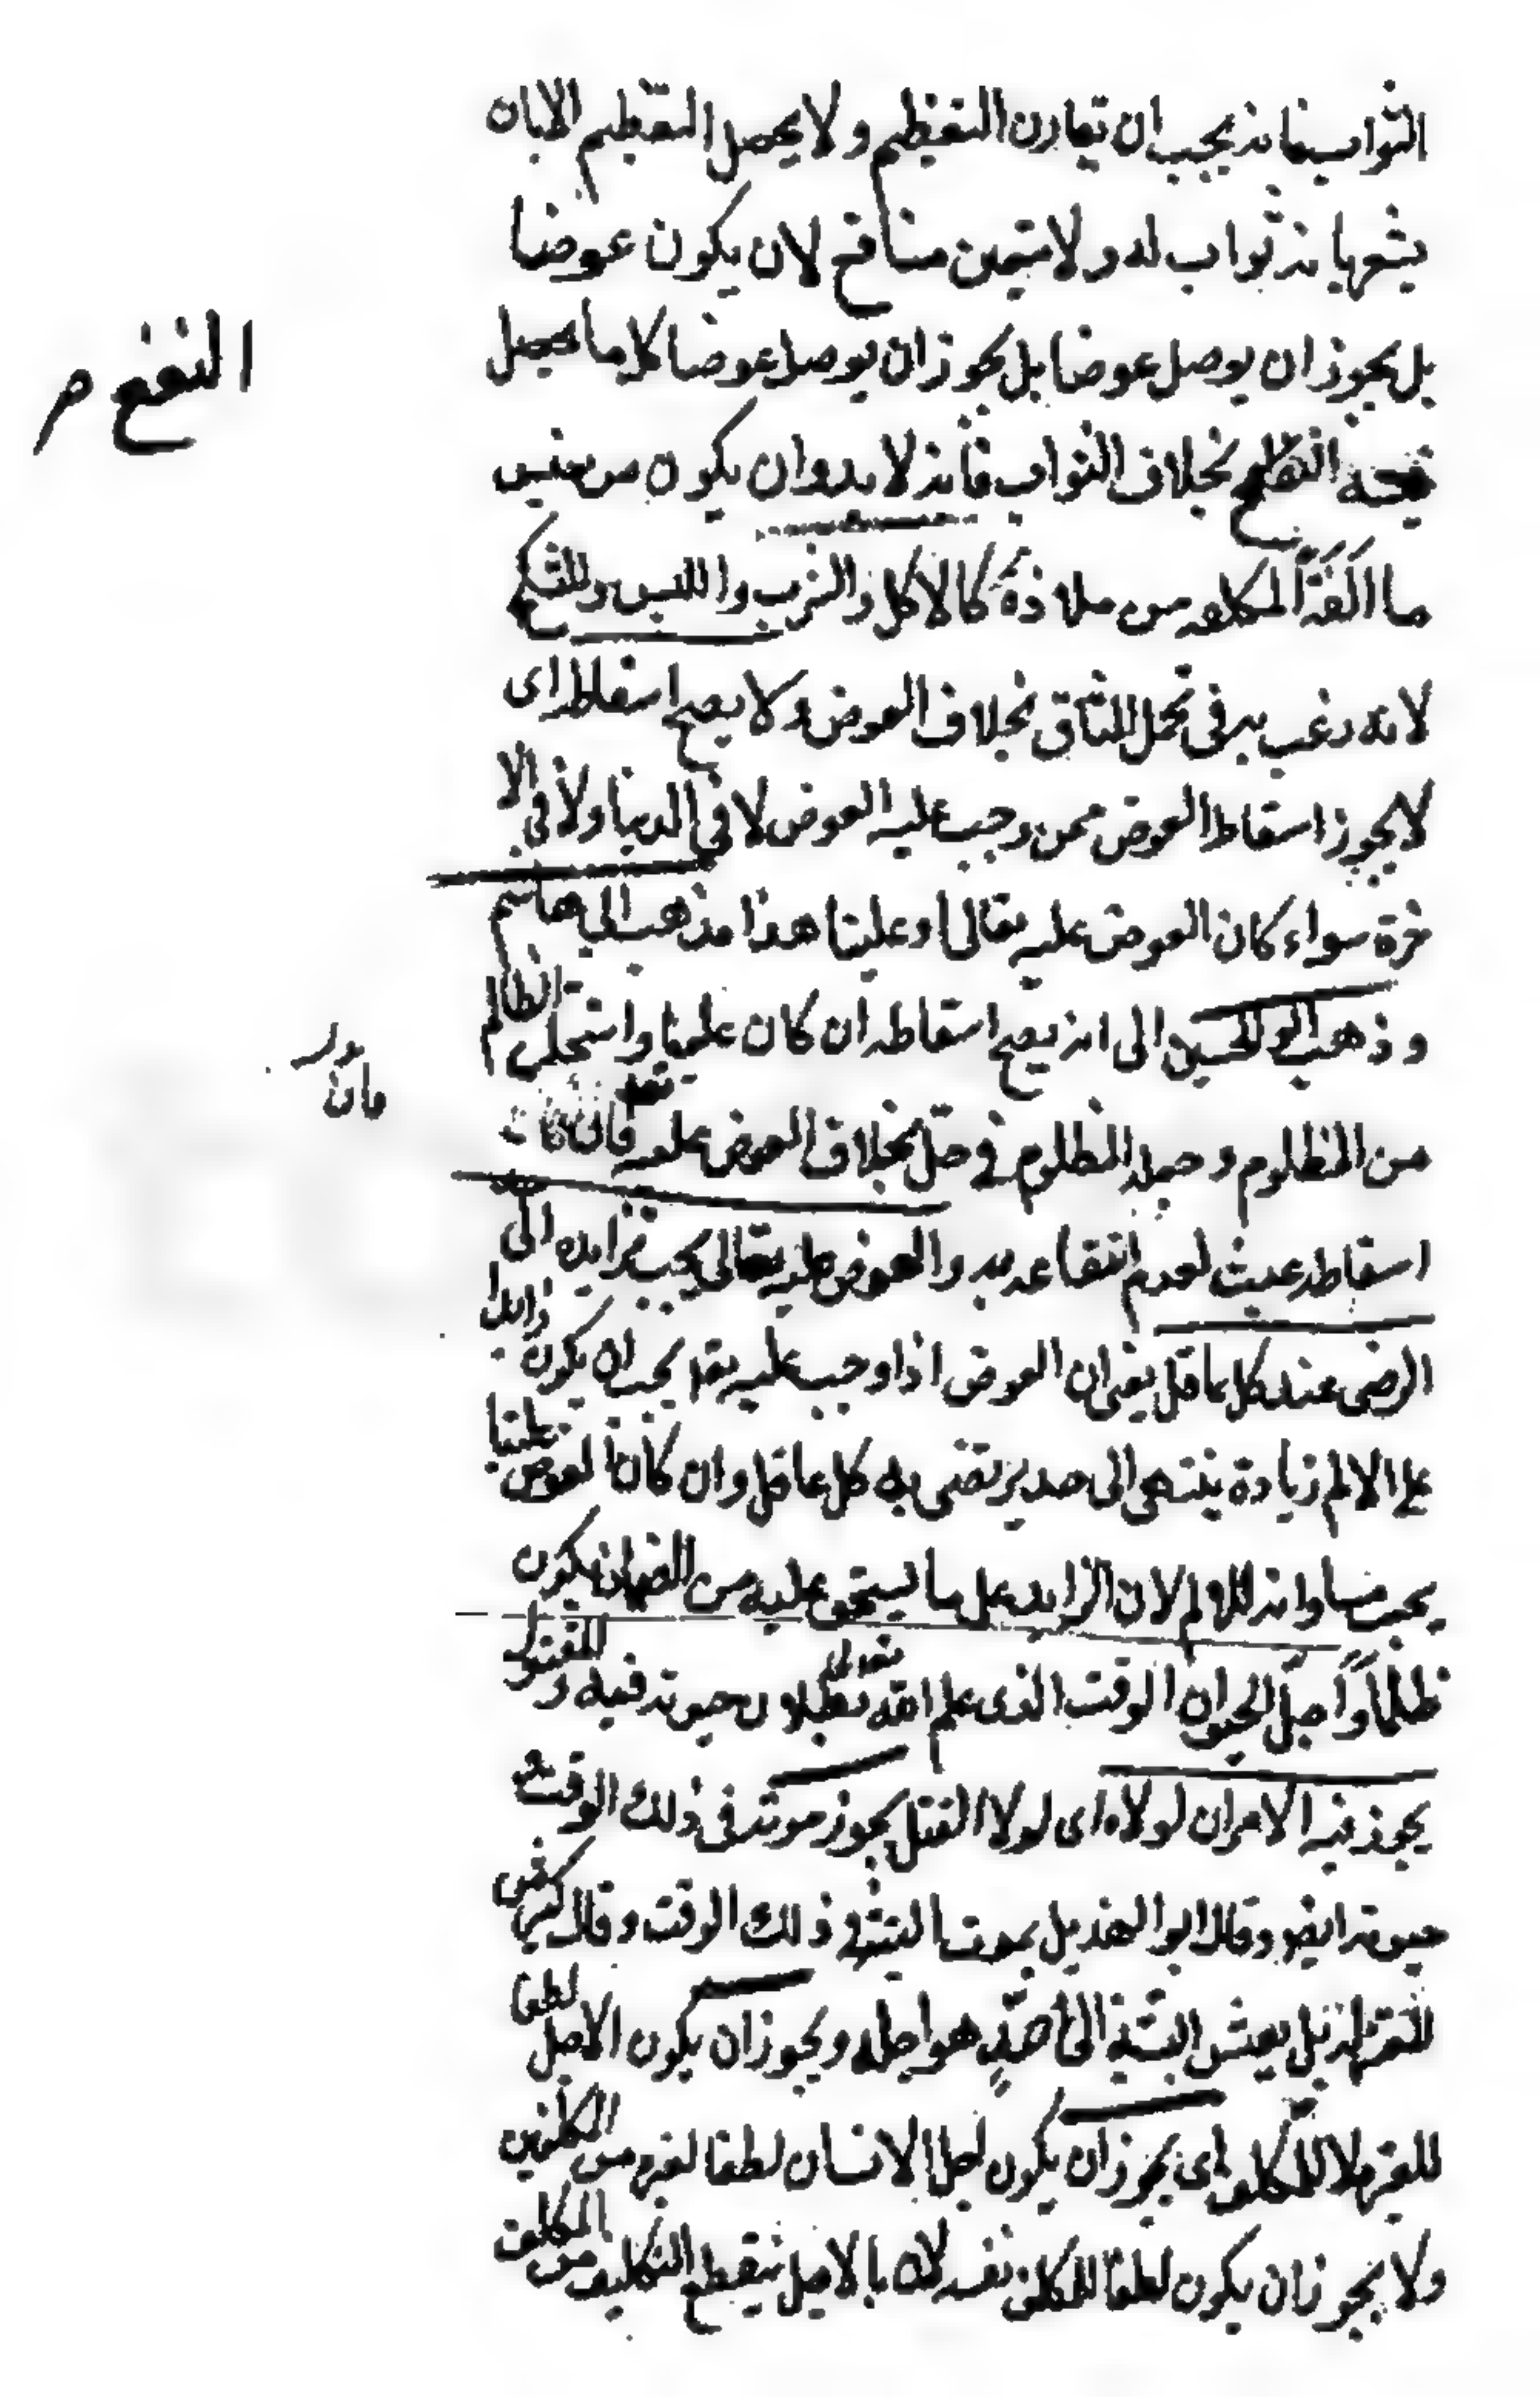 الثواب فانه يجب ان تقارن التعظيم ولا يحصل التعظيم الا بان
يشعر بانه ثواب له ولا يتعين منافع لان يكون عوضا
بل يجوز ان يوصل عوضا بل يجوز ان يوصل عوضا كل ما يحصل
فيه النفع بخلاف الثواب فانه لابد وان يكون من جنس
ما الفه المكلف من ملاذه كالاكل والشرب واللبس والنكح
لانه رغب به في تحمل المشاق بخلاف العوض ولا يصح اسقاطه اى
لا يجوز اسقاط العوض ممن وجب عليه العوض لا في الدنيا ولا في الا
خرة سواء كان العوض عليه تعالى او علينا هذا مذهب ابي هاشم
وذهب ابو الحسين الى انه يصح اسقاطه ان كان علينا واستحل الظالم
من المظلوم وجعله المظلوم في حل بخلاف العوض عليه تعالى فان
اسقاطه عبث لعدم انتفاعه به والعوض عليه تعالى يجب تزايده الى
الرضى عند كل عاقل يعنى ان العوض اذا وجب عليه تعا يجب ان يكون زايدا
على الالم زيادة ينتهى الى حد يرتضى به كل عاقل وان كان العوض علينا
يجب مساواته للالم لان الزايد على ما يستحق عليه من الضمان يكون
ظلما واجل الحيوان الوقت الذى علم الله تعالى بطلان حيوته فيه والمقتول
يجوز فيه الامران لولاه اى لولا القتل يجوز موته في ذلك الوقت و
حيوته ايضا وقال ابو الهذيل يموت البتة في ذلك الوقت وقال كثير من
المعتزلة بل يعيش البتة الى امد هو اجله ويجوز ان يكون الاجل لطفا
للغير لا للمكلف اى يجوز ان يكون اجل الانسان لطفا لغيره من المكلفين
ولا يجوز ان يكون لطفا للمكلف نفسه لان بالاجل ينقطع التكليف من المكلف
النفع م